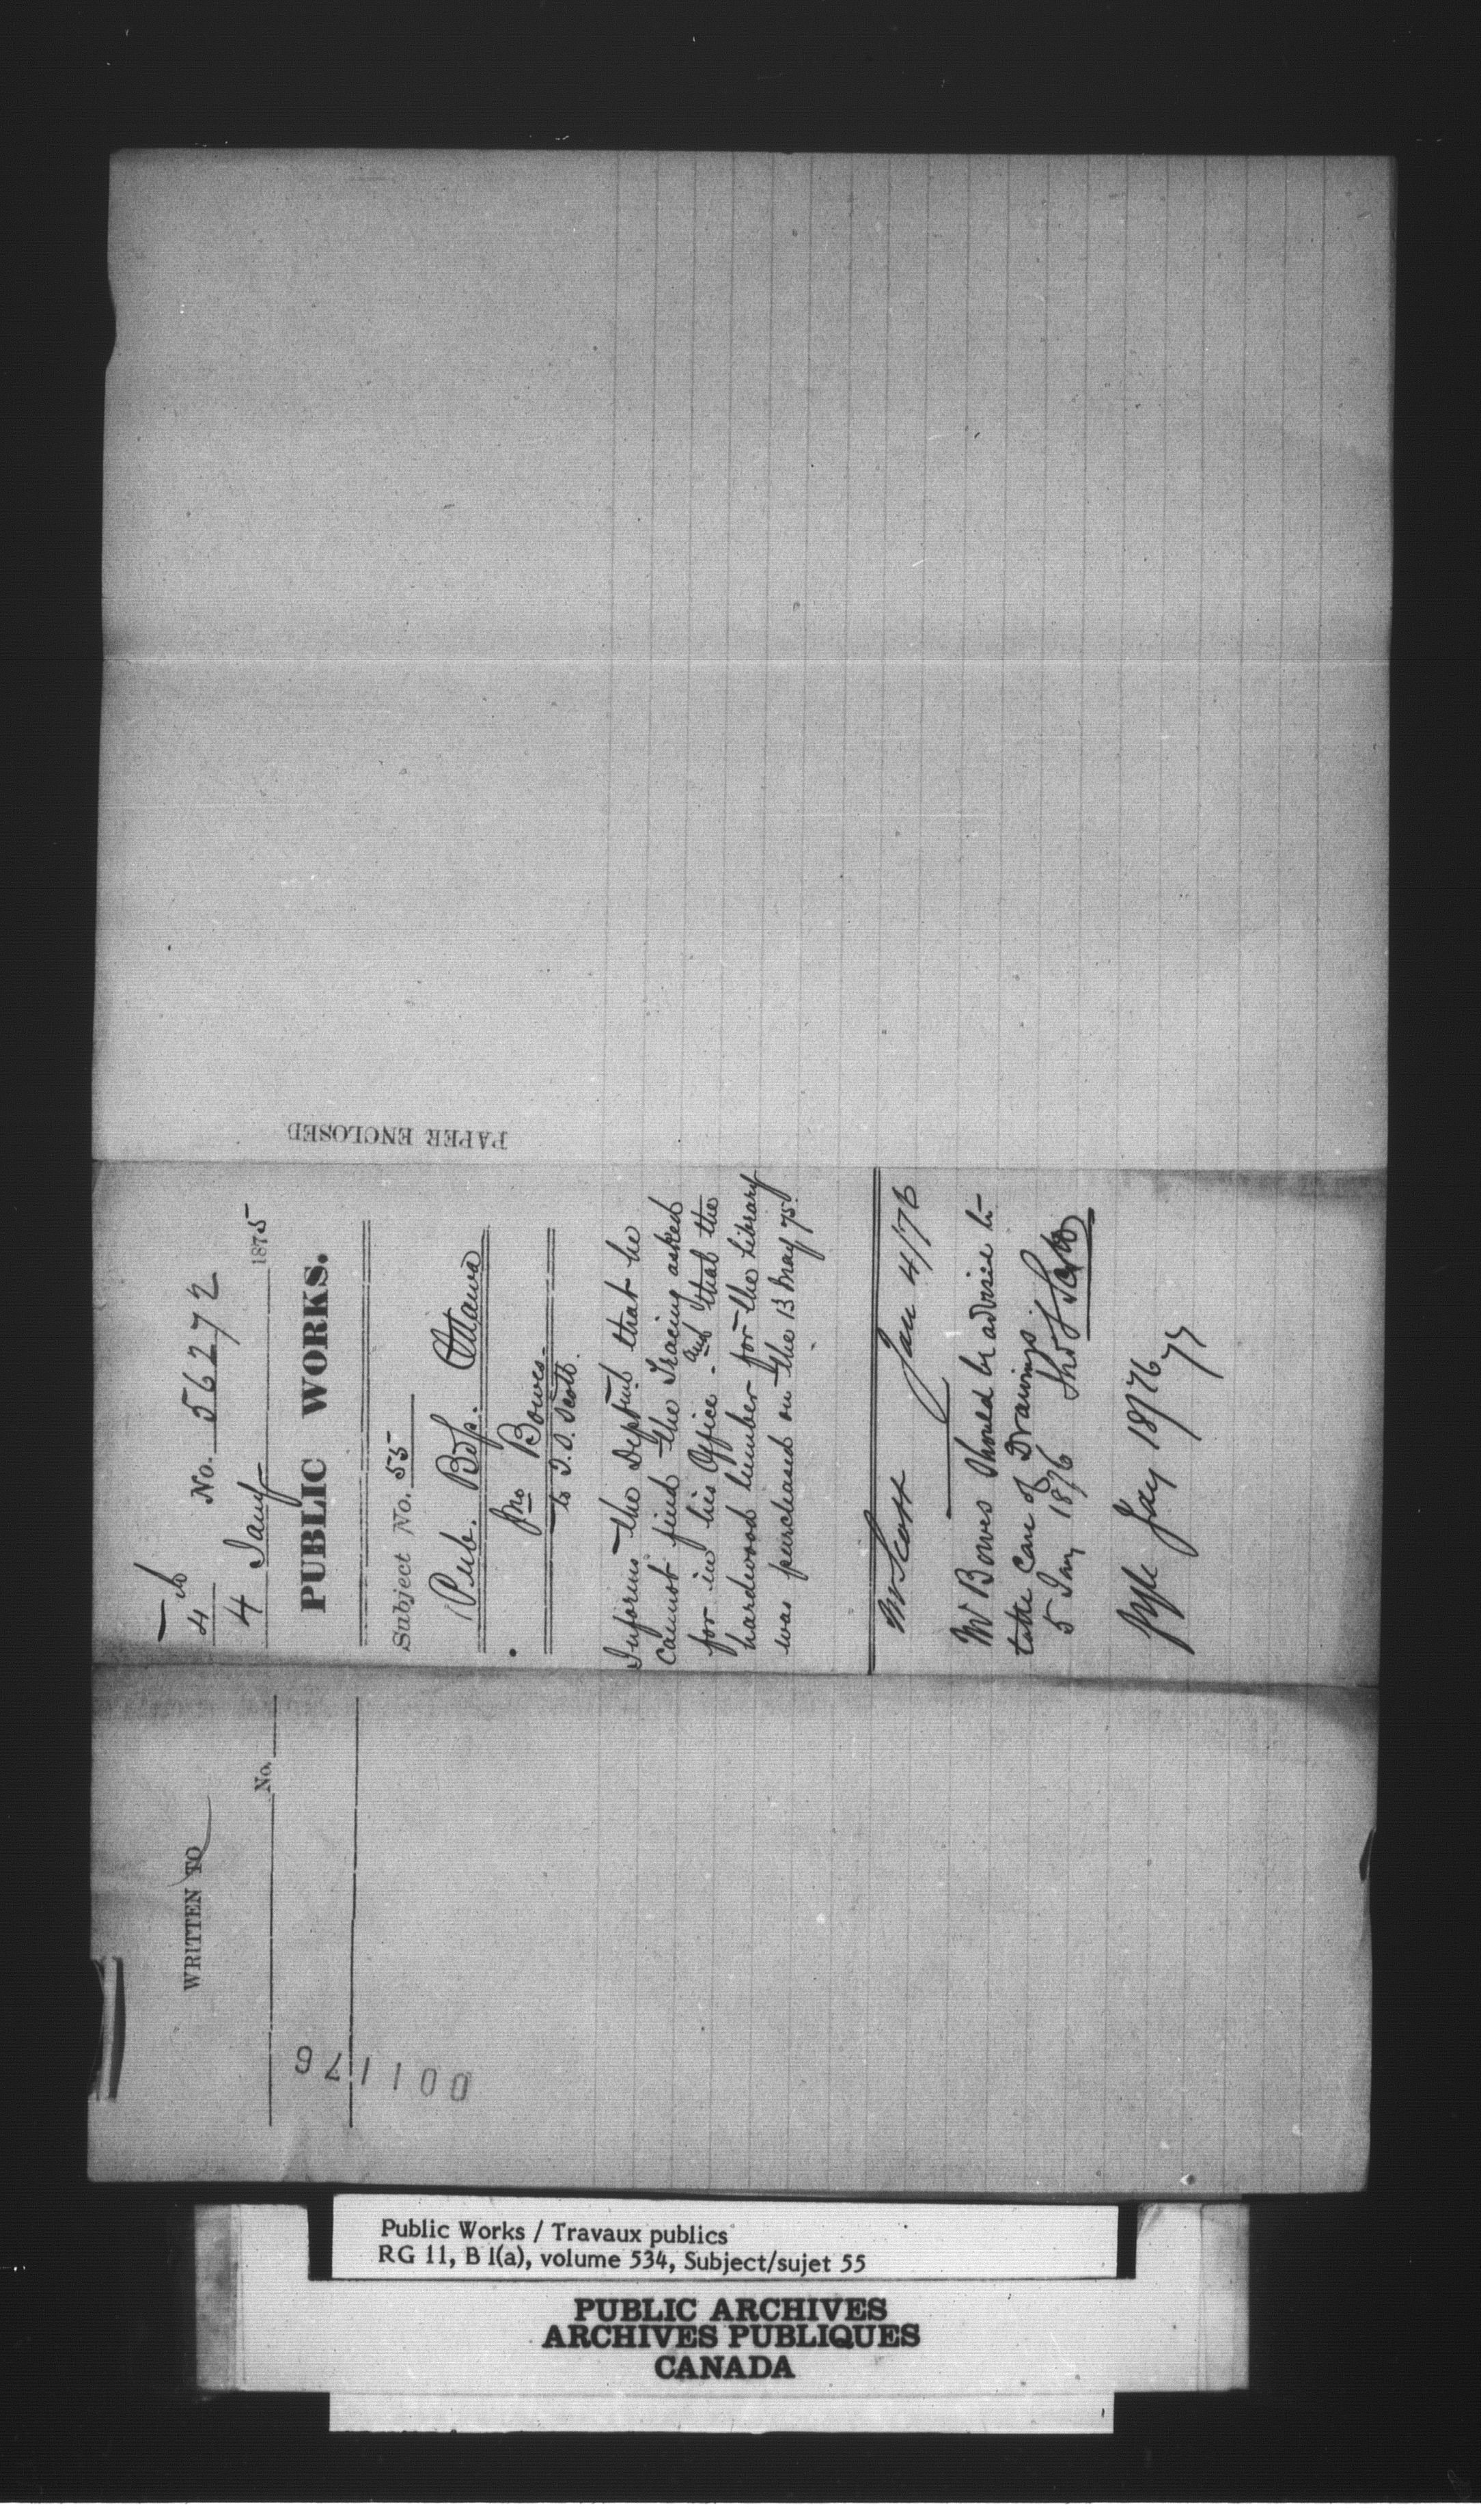 4
No. 56272
4 Jany 1875
PUBLIC WORKS.
Subject No. 55
Pub. Bdgs. Ottawa
Jno Bowes.
to T. S. Scott.
Informs the Deptmt that he
cannot find the Tracing asked
for in his Office - and that the
hardwood lumber for the Library
was purchased on the 13 May 75.
Mr Scott Jan 4/76
Mr Bowes should be advised to
take care of Drawings.
5 Jany 1876 Thos S Scott
Jany 18/76
PAPER ENCLOSED
WRITTEN TO
No.
001176
Public Works / Travaux publics
RG 11, B 1(a), volume 534, Subject/sujet 55
PUBLIC ARCHIVES
ARCHIVES PUBLIQUES
CANADA